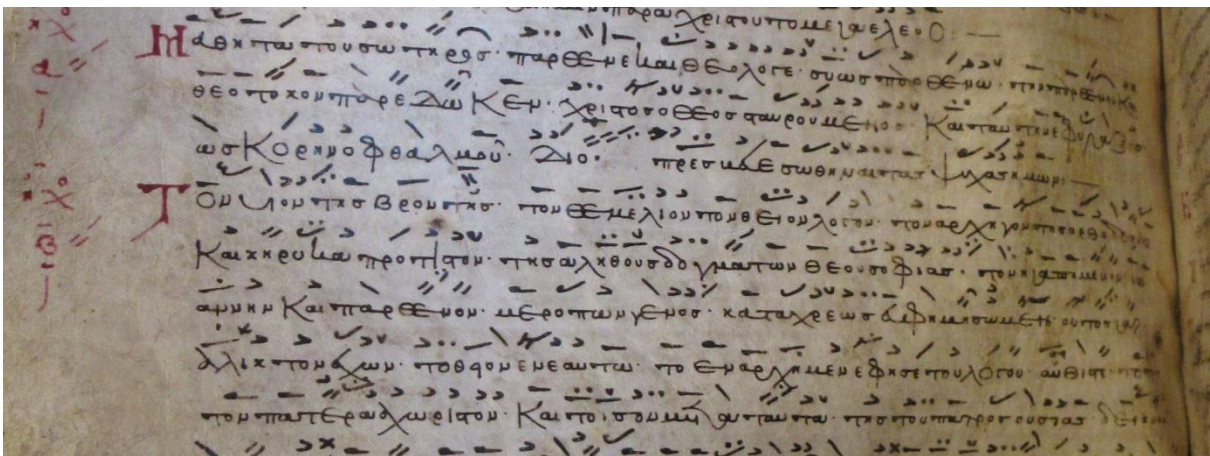 παρα χριστου το μεγα ελεος:
Μαθητα του σωτηρος· παρθενε και θεολογε· σοι ως παρθενω· την παρθενον
θεοτοκον παρεδωκεν· χριστος ο θεος σταυρουμενος· και ταυτην εφυλαξας
ως κορην οφθαλμου· διο· πρεσβευε σωθηναι τας ψυχας ημων:
Τον υιον της βροντης· τον θεμελιον των θειων λογων· τον αρχηγον της
και κηρυκα πρωτιστον· της αληθους δογματων θεου σοφιας· τον ηγαπημενον ιω
αννην και παρθενον· μεροπων γενος· κατα χρεως ευφημησωμεν· ουτος γαρ
αλληκτον εχων· το θειον εν εαυτω· το εν αρχη μεν εφησε του λογου· αυθις τε
τον πατερα αχωριστον· και το ισον μετα ταυτα· της του πατρος ουσιας·